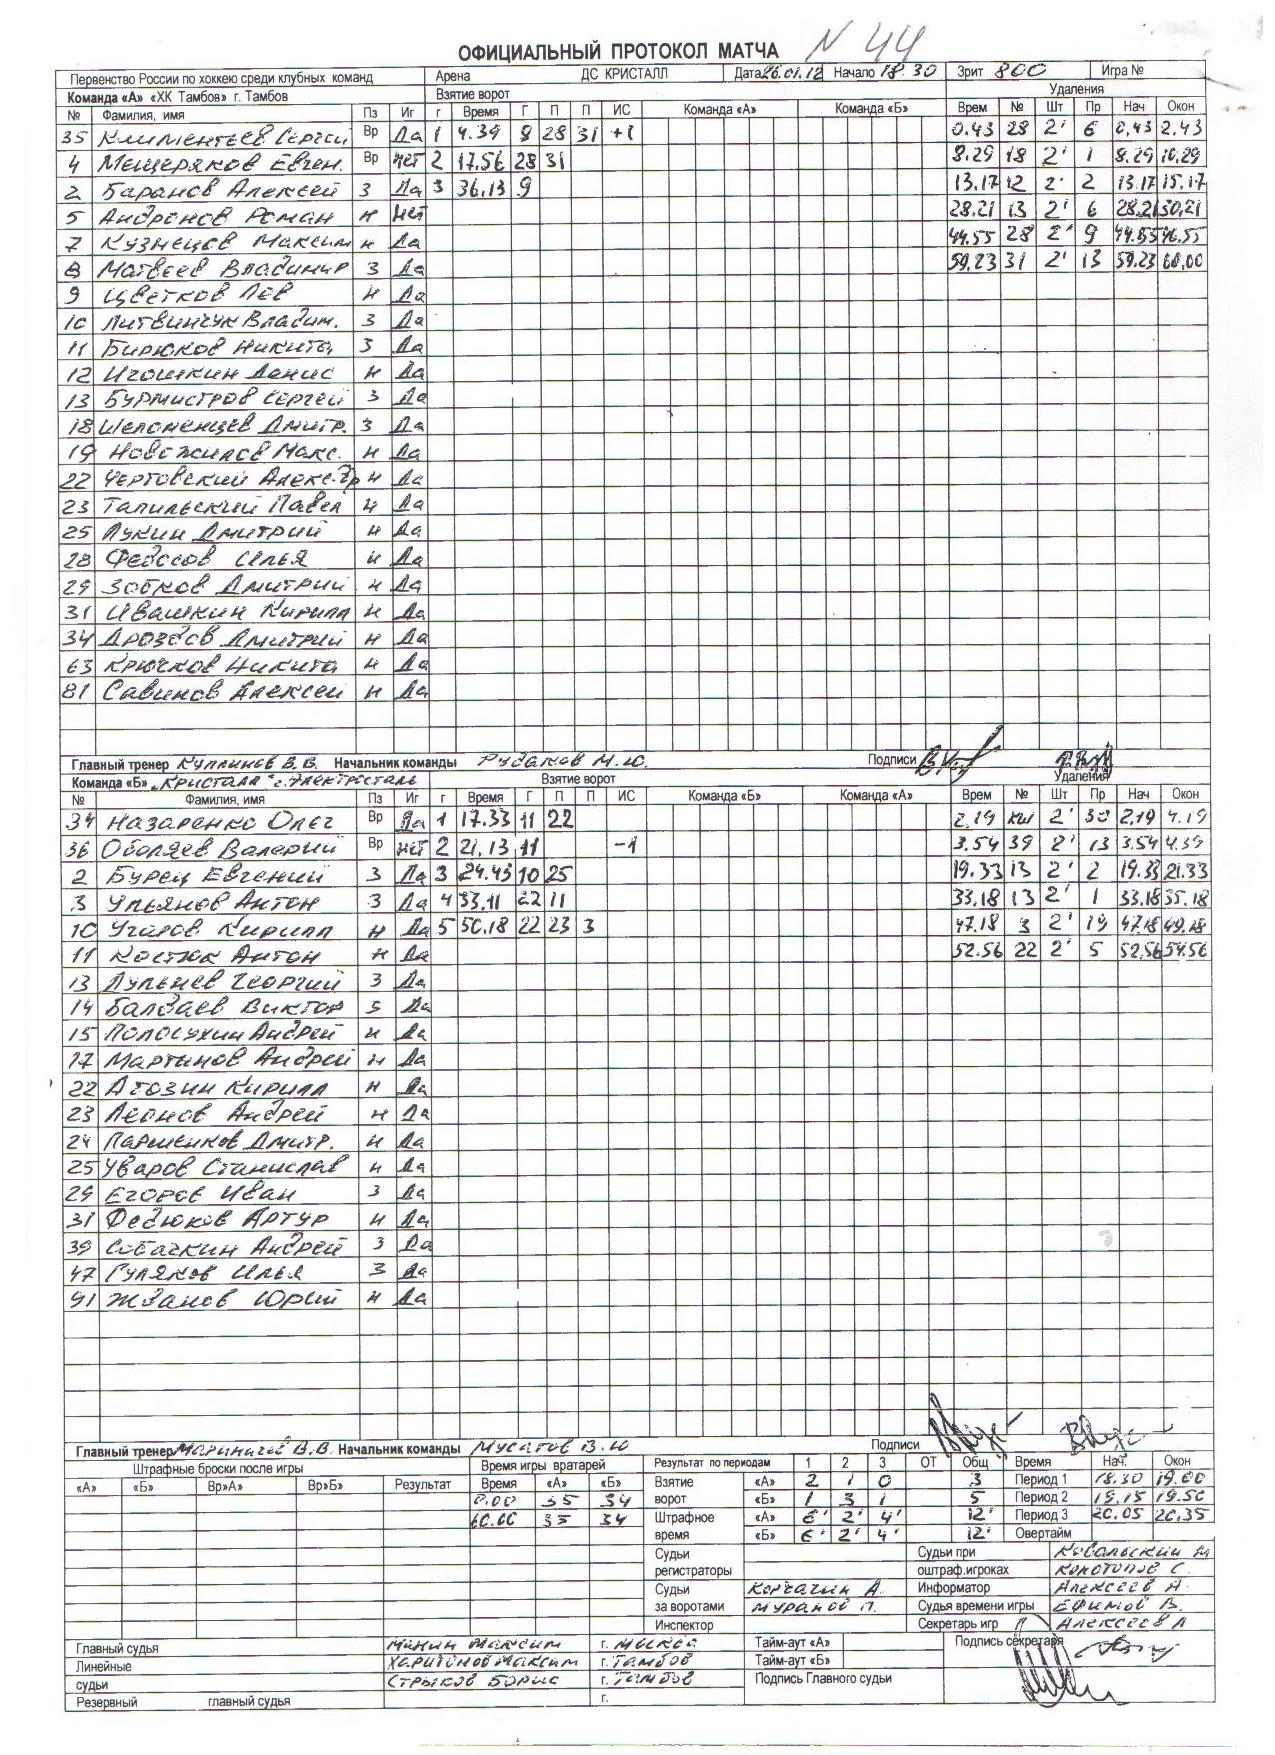 ОФИЦИАЛЬНЫЙ ПРОТОКОЛ МАТЧА N 44
Первенство России по хоккею среди клубных команд Арена ДС КРИСТАЛЛ Дата 26.01.12 Начало 18.30 Зрит 800 Игра №
Команда «А» «ХК Тамбов» г. Тамбов Взятие ворот Удаления
№ Фамилия, имя Пз Иг г Время Г П П ИС Команда «А» Команда «Б» Врем № Шт Пр Нач Окон
35 Климентьев Сергей Вр Да 1 4.39 8 28 31 +1 0.43 28 2' 6 0,43 2.43
4 Мещеряков Евген. Вр Нет 2 17.56 28 31 8.29 18 2' 1 8.29 10.29
2 Баранов Алексей З Да 3 36.13 9 13.17 12 2' 2 13.17 15.17
5 Андронов Роман Н Нет 28.21 13 2' 6 28.21 30.21
7 Кузнецов Максим Н Да 44.55 28 2' 9 44.55 46.55
8 Матвеев Владимир З Да 59.23 31 2' 13 59.23 60.00
9 Цветков Лев Н Да
10 Литвинчук Владим. З Да
11 Бирюков Никита З Да
12 Игошкин Денис Н Да
13 Бурмистров Сергей З Да
18 Шеломенцев Дмитр. З Да
19 Новожилов Макс. Н Да
22 Чертовский Алекс-др Н Да
23 Тапильский Павел Н Да
25 Лукин Дмитрий Н Да
28 Федосов Илья Н Да
29 Зобков Дмитрий Н Да
31 Ивашкин Кирилл Н Да
34 Дроздов Дмитрий Н Да
63 Крючков Никита Н Да
81 Савинов Алексей Н Да
Главный тренер В.В. Начальник команды Рудаков М.Ю. Подписи
Команда «Б» „Кристалл" г. Электросталь Взятие ворот Удаления
№ Фамилия, имя Пз Иг г Время Г П П ИС Команда «Б» Команда «А» Врем № Шт Пр Нач Окон
34 Назаренко Олег Вр Да 1 17.33 11 22 2,19 КШ 2' 30 2,19 4.19
36 Оболяев Валерий Вр Нет 2 21,13 11 -1 3.54 39 2' 13 3.54 4.39
2 Бурец Евгений З Да 3 24.45 10 25 19.33 13 2' 2 19.33 21.33
3 Ульянов Антон З Да 4 33.11 22 11 33.18 13 2' 1 33.18 35.18
10 Угаров Кирилл Н Да 5 50.18 22 23 3 47.18 3 2' 19 47.18 49.18
11 Костюк Антон Н Да 52.56 22 2' 5 52.56 54.56
13 Лупенев Георгий З Да
14 Балдаев Виктор З Да
15 Полосухин Андрей Н Да
17 Мартынов Андрей Н Да
22 Агозин Кирилл Н Да
23 Леонов Андрей Н Да
24 Паршенков Дмитр. Н Да
25 Уваров Станислав Н Да
29 Егоров Иван З Да
31 Федюков Артур Н Да
39 Собачкин Андрей З Да
47 Гуляков Илья З Да
91 Жданов Юрий Н Да
Главный тренер Мариничев В.В. Начальник команды Мусатов В.Ю Подписи
Штрафные броски после игры Время игры вратарей Результат по периодам 1 2 3 ОТ Общ Время Нач. Окон
«А» «Б» Вр»А» Вр»Б» Результат Время «А» «Б» Взятие «А» 2 1 0 3 Период 1 18.30 19.00
0.00 35 34 ворот «Б» 1 3 1 5 Период 2 19.15 19.50
60.00 35 34 Штрафное «А» 6' 2' 4' 12' Период 3 20.05 20.35
время «Б» 6' 2' 4' 12' Овертайм
Судьи Судьи при Ковальский М
регистраторы оштраф.игроках Конотопов С.
Судьи Корчагин А. Информатор Алексеев А.
за воротами Муранов П. Судья времени игры Ефимов В.
Инспектор Секретарь игр Алексеев А
Главный судья Минин Максим г. Москва Тайм-аут «А» Подпись секретаря
Линейные Харитонов Максим г. Тамбов Тайм-аут «Б»
судьи Стрыков Борис г. Тамбов Подпись Главного судьи
Резервный главный судья г.